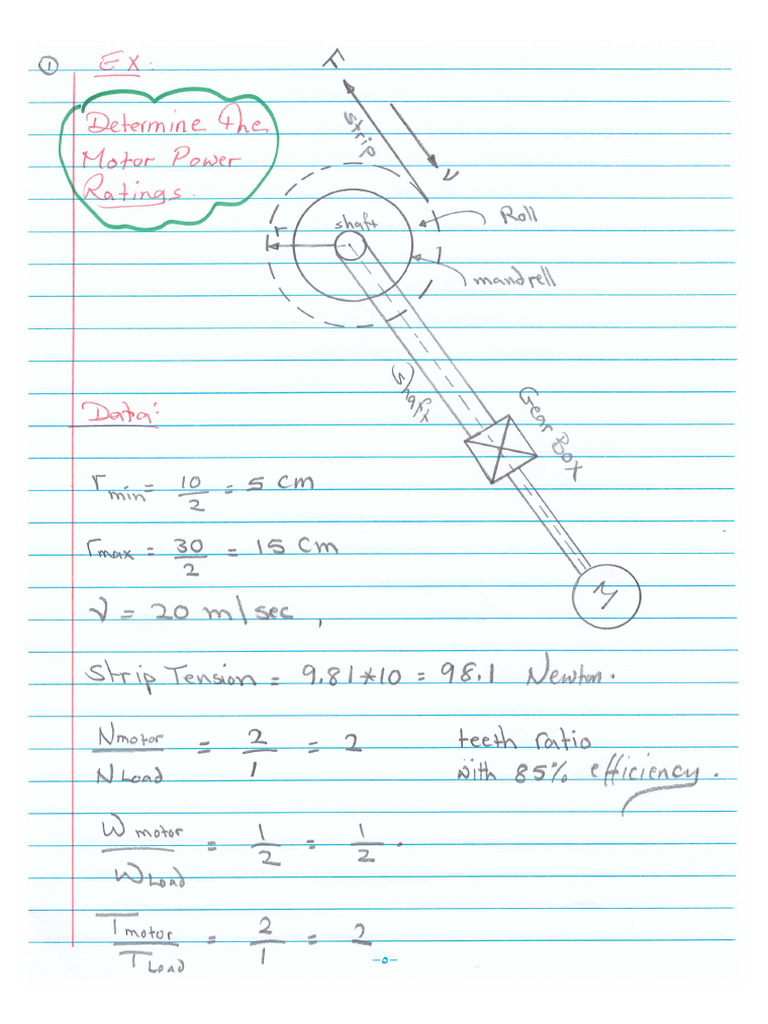 ① EX:
Determine the
Motor Power
Ratings.
F
strip
v
r
shaft
Roll
mandrell
shaft
Gear Box
M
Data:
r min = 10/2 = 5 cm
r max = 30/2 = 15 cm
v = 20 m/sec,
Strip Tension = 9.81*10 = 98.1 Newton.
N motor / N Load = 2/1 = 2 teeth ratio
with 85% efficiency.
W motor / W Load = 1/2 = 1/2.
T motor / T Load = 2/1 = 2
-0-